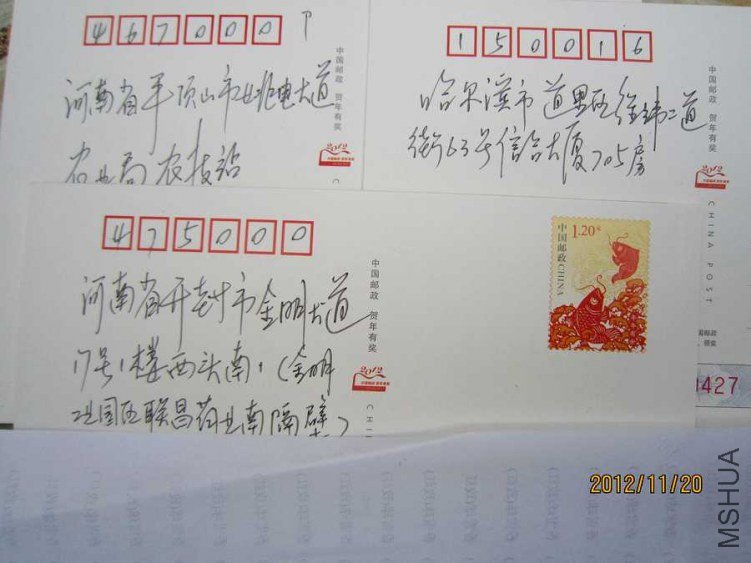 467000
河南省平顶山市建设电大道
农业局农技站
中国邮政 贺年有奖
2012
150016
哈尔滨市道里区经纬二道
街63号信合大厦705房
中国邮政 贺年有奖
2012
CHINA POST
475000
河南省开封市金明大道
17号1楼西头南1(金明
社国区联昌药业南隔壁)
中国邮政 贺年有奖
2012
中国邮政 CHINA
1.20元
0427
2012/11/20
MSHUA